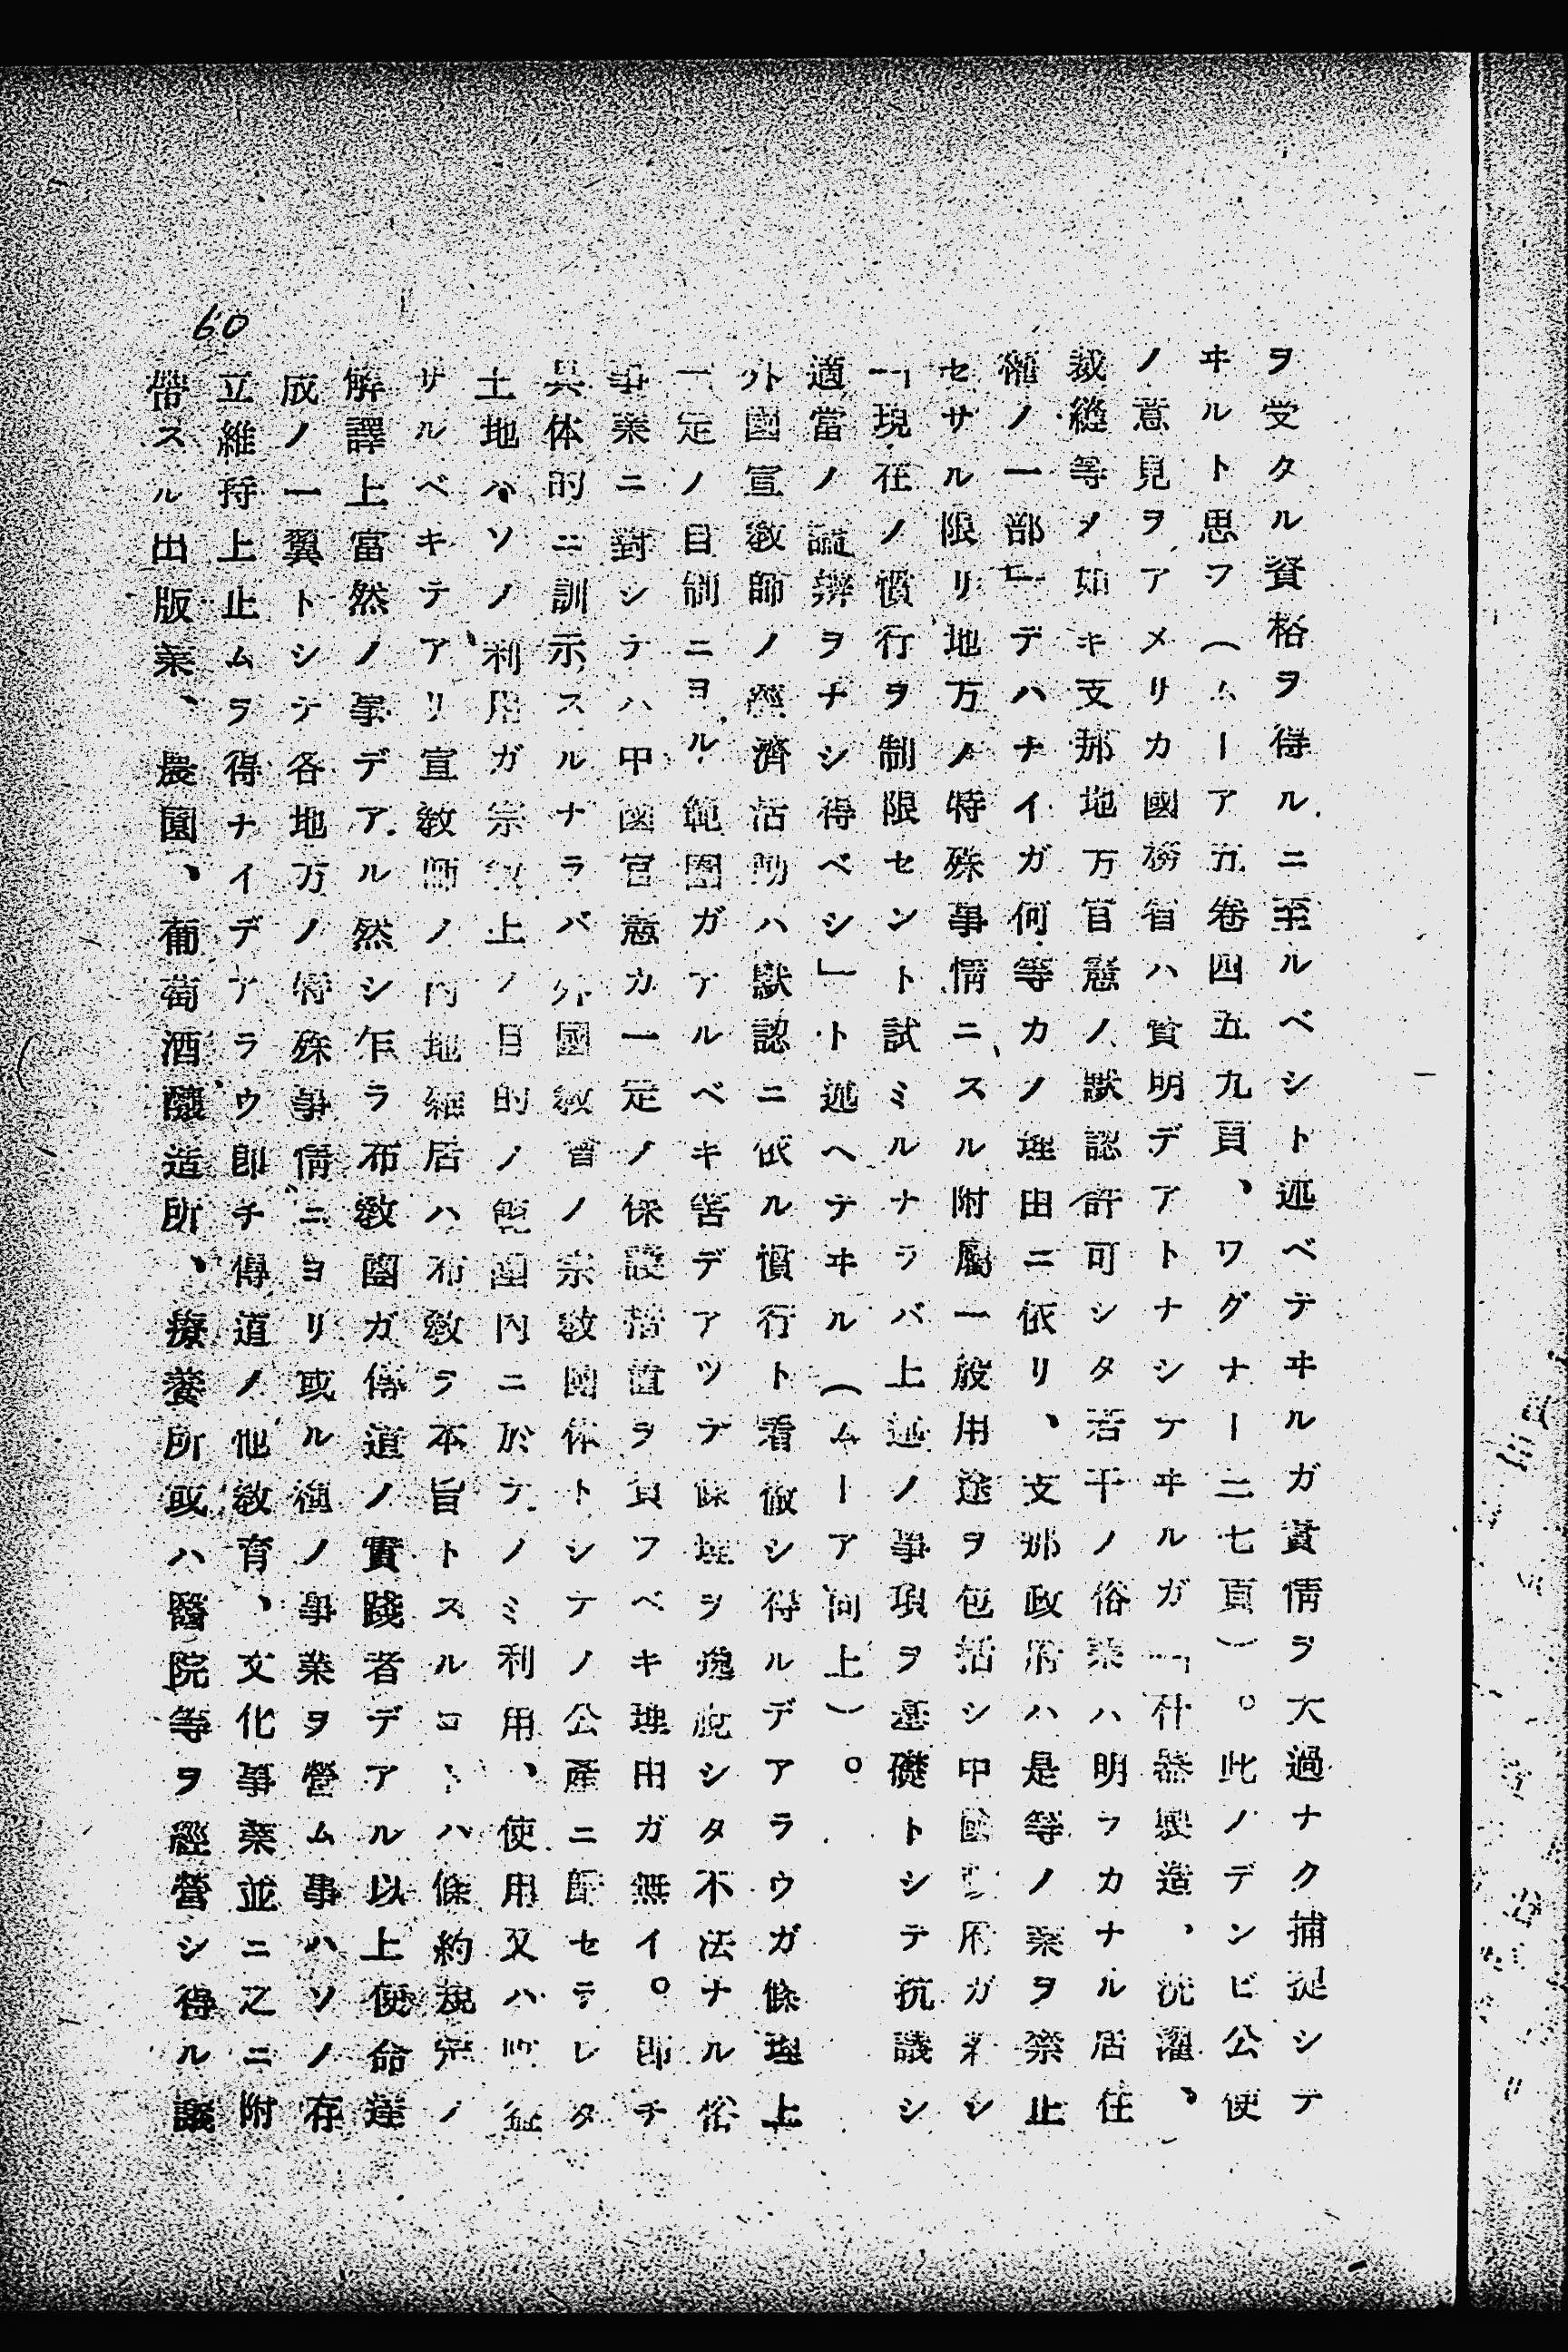 ヲ受タル資格ヲ得ルニ至ルベシト述ベテヰルガ實情ヲ大過ナク捕捉シテ
ヰルト思フ（ムーア五卷四五九頁、ワグナー二七頁）。此ノデンビ公使
ノ意見ヲアメリカ國務省ハ賛明デアトナシテヰルガ「什器製造、洗濯、
裁縫等ノ如キ支那地方官憲ノ默認許可シタ若干ノ俗業ハ明ラカナル居住
權ノ一部デハナイガ何等カノ理由ニ依リ、支那政府ハ是等ノ業ヲ禁止
セサル限リ地方ノ特殊事情ニスル附屬一般用途ヲ包括シ中國政府ガ若シ
「現在ノ慣行ヲ制限セント試ミルナラバ上述ノ事項ヲ基礎トシテ抗議シ
適當ノ論辨ヲナシ得ベシ」ト述ヘテヰル（ムーア同上）。
外國宣敎師ノ經濟活動ハ默認ニ依ル慣行ト看做シ得ルデアラウガ條理上
一定ノ目制ニヨル範圍ガアルベキ筈デアツテ條理ヲ逸脫シタ不法ナル俗
事業ニ對シテハ中國官憲カ一定ノ保護措置ヲ負フベキ理由ガ無イ。卽チ
具体的ニ訓示スルナラバ外國敎會ノ宗敎團体トシテノ公產ニ配セラレタ
土地ハソノ利用ガ宗敎上ノ目的ノ範圍内ニ於テノミ利用、使用又ハ收益
サルベキテアリ宣敎師ノ内地雜居ハ布敎ヲ本旨トスルコトハ條約規定ノ
解譯上當然ノ事デアル然シ乍ラ布敎團ガ傳道ノ實踐者デアル以上使命達
成ノ一翼トシテ各地方ノ特殊事情ニヨリ或ル種ノ事業ヲ營ム事ハソノ存
立維持上止ムヲ得ナイデアラウ卽チ傳道ノ他敎育、文化事業並ニ之ニ附
帶スル出版業、農園、葡萄酒釀造所、療養所或ハ醫院等ヲ經營シ得ル議
60